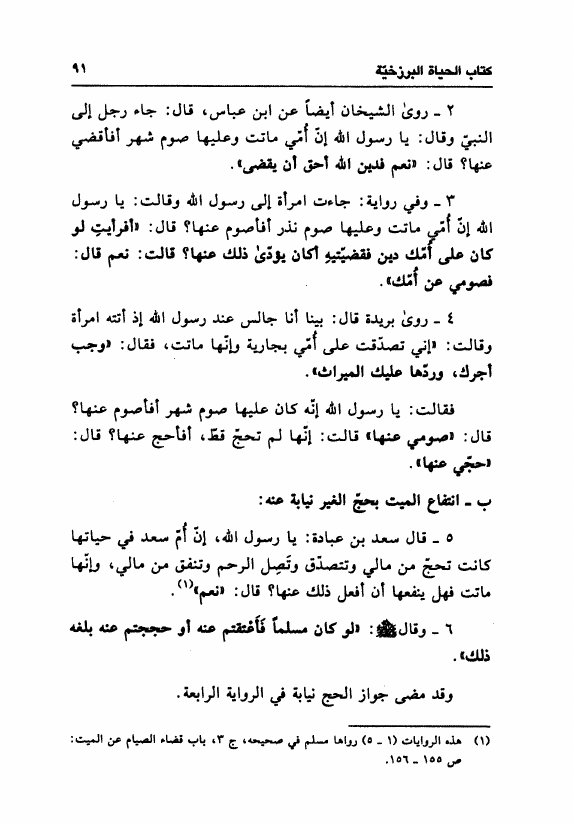 كتاب الحياة البرزخيّة ٩١
٢ ـ روىٰ الشيخان أيضاً عن ابن عباس، قال: جاء رجل إلى
النبيّ وقال: يا رسول الله إنّ أُمّي ماتت وعليها صوم شهر أفأقضي
عنها؟ قال: «نعم فدين الله أحق أن يقضى».
٣ ـ وفي رواية: جاءت امرأة إلى رسول الله وقالت: يا رسول
الله إنّ أُمّي ماتت وعليها صوم نذر أفأصوم عنها؟ قال: «أفرأيتِ لو
كان على أُمّك دين فقضيّتيهِ أكان يؤدّىٰ ذلك عنها؟ قالت: نعم قال:
فصومي عن أُمّك».
٤ ـ روىٰ بريدة قال: بينا أنا جالس عند رسول الله إذ أتته امرأة
وقالت: «إني تصدّقت على أُمّي بجارية وإنّها ماتت، فقال: «وجب
أجرك، وردّها عليك الميراث».
فقالت: يا رسول الله إنّه كان عليها صوم شهر أفأصوم عنها؟
قال: «صومي عنها» قالت: إنّها لم تحجّ قطّ، أفأحج عنها؟ قال:
«حجّي عنها».
ب ـ انتفاع الميت بحجّ الغير نيابة عنه:
٥ ـ قال سعد بن عبادة: يا رسول الله، إنّ أُمّ سعد في حياتها
كانت تحجّ من مالي وتتصدّق وتَصِل الرحم وتنفق من مالي، وإنّها
ماتت فهل ينفعها أن أفعل ذلك عنها؟ قال: «نعم»(١).
٦ ـ وقال ﷺ: «لو كان مسلماً فَأَعْتقتم عنه أو حججتم عنه بلغه
ذلك».
وقد مضى جواز الحج نيابة في الرواية الرابعة.
(١) هذه الروايات (١ ـ ٥) رواها مسلم في صحيحه، ج ٣، باب قضاء الصيام عن الميت:
ص ١٥٥ ـ ١٥٦.